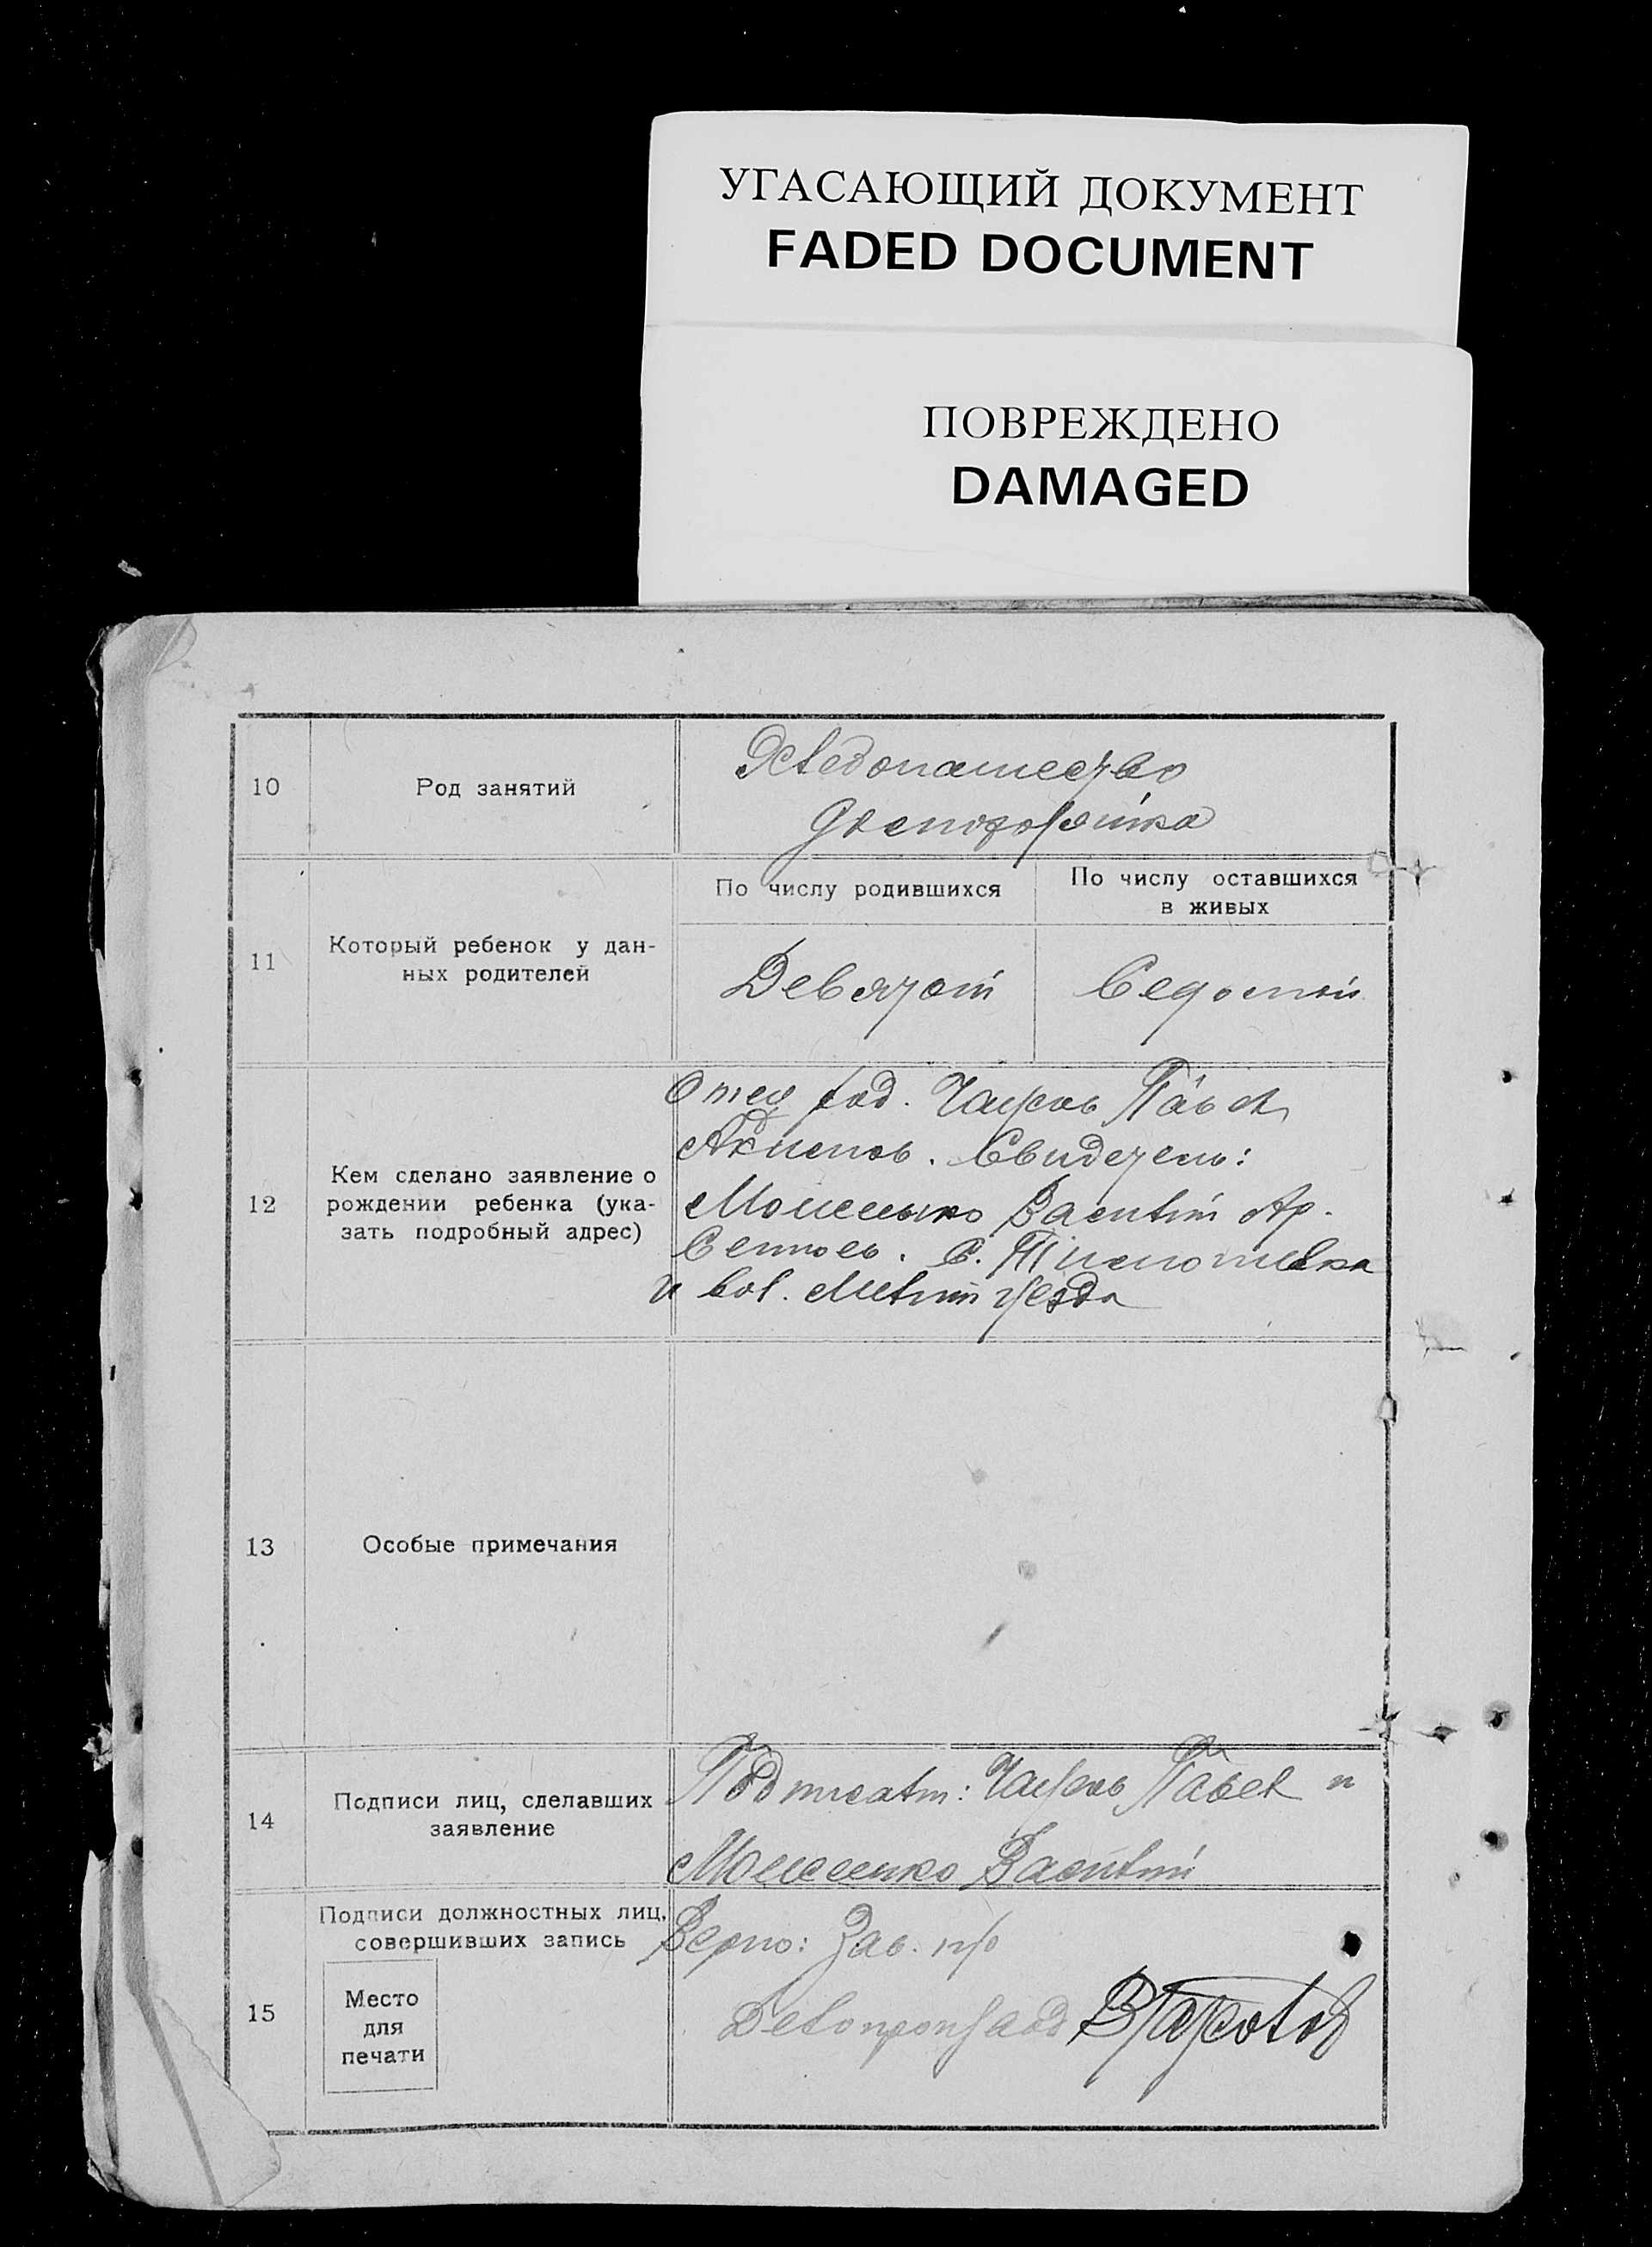 УГАСАЮЩИЙ ДОКУМЕНТ
FADED DOCUMENT
ПОВРЕЖДЕНО
DAMAGED
10
Род занятий
Хлебопашество
11
Который ребенок у дан-
ных родителей
По числу родившихся
По числу оставшихся
в живых
Девятый
Седьмой
12
Кем сделано заявление о
рождении ребенка (ука-
зать подробный адрес)
Отец род.
Свидетель:
Василий
с.
и вол. уезда
13
Особые примечания
14
Подписи лиц, сделавших
заявление
Подписали: Павел и
Василий
15
Подписи должностных лиц,
совершивших запись
Место
для
печати
Верно: Зав. п/о
Делопроизвод